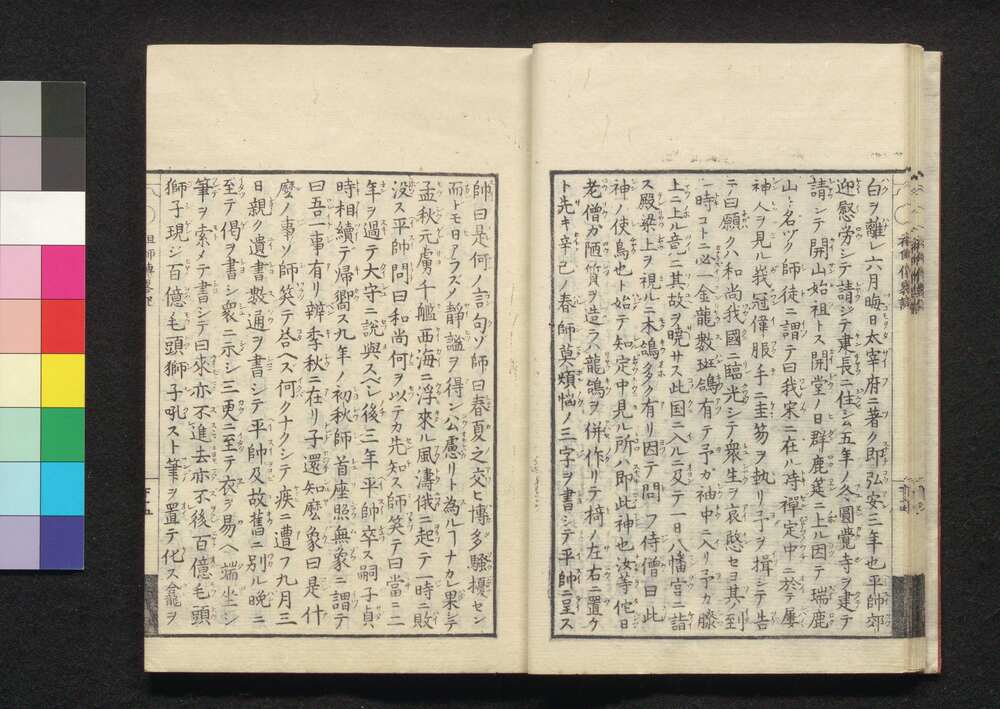 白ヲ離レ六月晦日太宰府ニ著ク即弘安三年也平帥郊
迎慰労シテ請ジテ東長ニ住シム五年ノ冬圓覺寺ヲ建テ
請シテ開山始祖トス開堂ノ日群鹿筵ニ上ル因テ瑞鹿
山ト名ヅク師徒ニ謂テ曰我宋ニ在ル時禪定中ニ於テ屢
神人ヲ見ル峩冠偉服手ニ圭笏ヲ執リ予ヲ揖シテ告
テ曰願クハ和尚我國ニ臨光シテ衆生ヲ哀愍セヨ其到
一時コトニ必一金龍數斑鴿有テ予カ袖中ニ入リ予カ膝
上ニ上ル意ニ其故ヲ曉サス此国ニ入ルニ及テ一日八幡宮ニ詣
ス殿梁上ヲ視ルニ木鴿多ク有リ因テ問フ侍僧曰此
神ノ使鳥也ト始テ知定中見ル所ハ即此神也汝等佗日
老僧ガ陋質ヲ造ラハ龍鴿ヲ併作リテ椅ノ左右ニ置ケ
ト先キ辛巳ノ春師莫煩惱ノ三字ヲ書シテ平帥ニ呈ス
帥曰是何ノ言句ゾ師曰春夏之交ヒ博多騒擾セン
而トモ日アラズノ静謐ヲ得ン公慮リト為ルヿナカレ果シテ
孟秋元虜千艦西海ニ浮來ル風濤俄ニ起テ一時ニ敗
没ス平帥問曰和尚何ヲ以テカ先知ス師笑テ曰當ニ二
年ヲ過テ大守ニ説與スベシ後三年平帥卒ス嗣子貞
時相續テ帰嚮ス九年ノ初秋師首座照無象ニ謂テ
曰吾一事有リ辨季秋ニ在リ子還知麽象曰是什
麽ノ事ソ師笑テ答ヘズ何クナクシテ疾ニ遭フ九月三
日親ク遺書數通ヲ書シテ平帥及故舊ニ別ル晩ニ
至テ偈ヲ書シ衆ニ示シ三更ニ至テ衣ヲ易ヘ端坐シ
筆ヲ索メテ書シテ曰來亦不進去亦不後百億毛頭
獅子現シ百億毛頭獅子吼スト筆ヲ置テ化ス龕ヲ